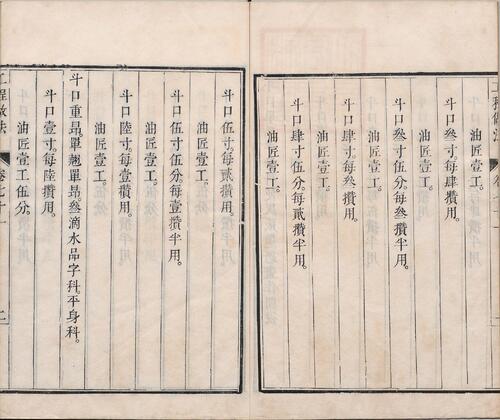 油匠壹工。
斗口叁寸。每肆攢用。
油匠壹工。
斗口叁寸伍分。每叁攢半用。
油匠壹工。
斗口肆寸。每叁攢用。
油匠壹工。
斗口肆寸伍分。每貳攢半用。
油匠壹工。
斗口伍寸。每貳攢用。
油匠壹工。
斗口伍寸伍分。每壹攢半用。
油匠壹工。
斗口陸寸。每壹攢用。
油匠壹工。
斗口重昂。單翹單昂。叁滴水品字科。平身科。
斗口壹寸。每陸攢用。
油匠壹工伍分。
工程做法
卷七十一
二